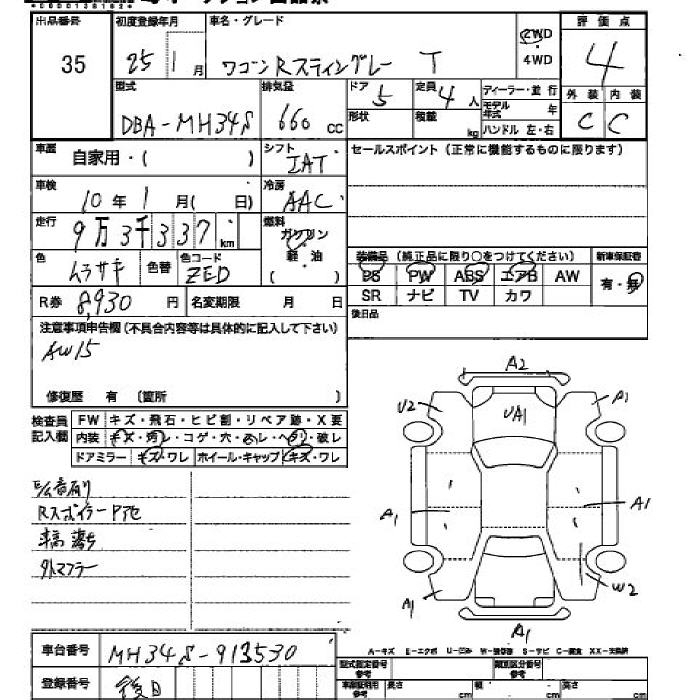 出品番号 初度登録年月 車名・グレード 評価点
35 25 1月 ワゴンRスティングレー T 2WD 4WD 4
型式 排気量 ドア 定員 ディーラー・並行 外装 内装
DBA-MH34S 660 cc 5 4人 モデル年式 年 C C
形状 積載 kg ハンドル 左・右
車歴 自家用・( ) シフト IAT セールスポイント(正常に機能するものに限ります)
車検 10年1月( 日) 冷房 AAC
走行 9万3千337 km 燃料 ガソリン 軽・油 ( )
装備品 (純正品に限り○をつけてください) 新車保証書
色 ムラサキ 色替 色コード ZED PS PW ABS エアB AW 有・無
R券 8,930 円 名変期限 月 日 SR ナビ TV カワ
注意事項申告欄(不具合内容等は具体的に記入して下さい) 後日品
AW15
修復歴 有 (箇所 )
検査員記入欄 FW キズ・飛石・ヒビ割・リペア跡・X要
内装 キズ・コゲ・穴・破レ
ドアミラー キズ・ワレ ホイール・キャップ キズ・ワレ
A2
U2 A1
UA1
A1 A1
A1 W2
A1
Rスポイラー
外マフラー
車台番号 MH34S-913530
A-キズ E-エクボ U-凹み W-補修跡 S-サビ C-腐食 XX-交換済
登録番号 後日
型式指定番号 参考 類別区分番号 参考
車庫証明用 参考 長さ cm 幅 cm 高さ cm